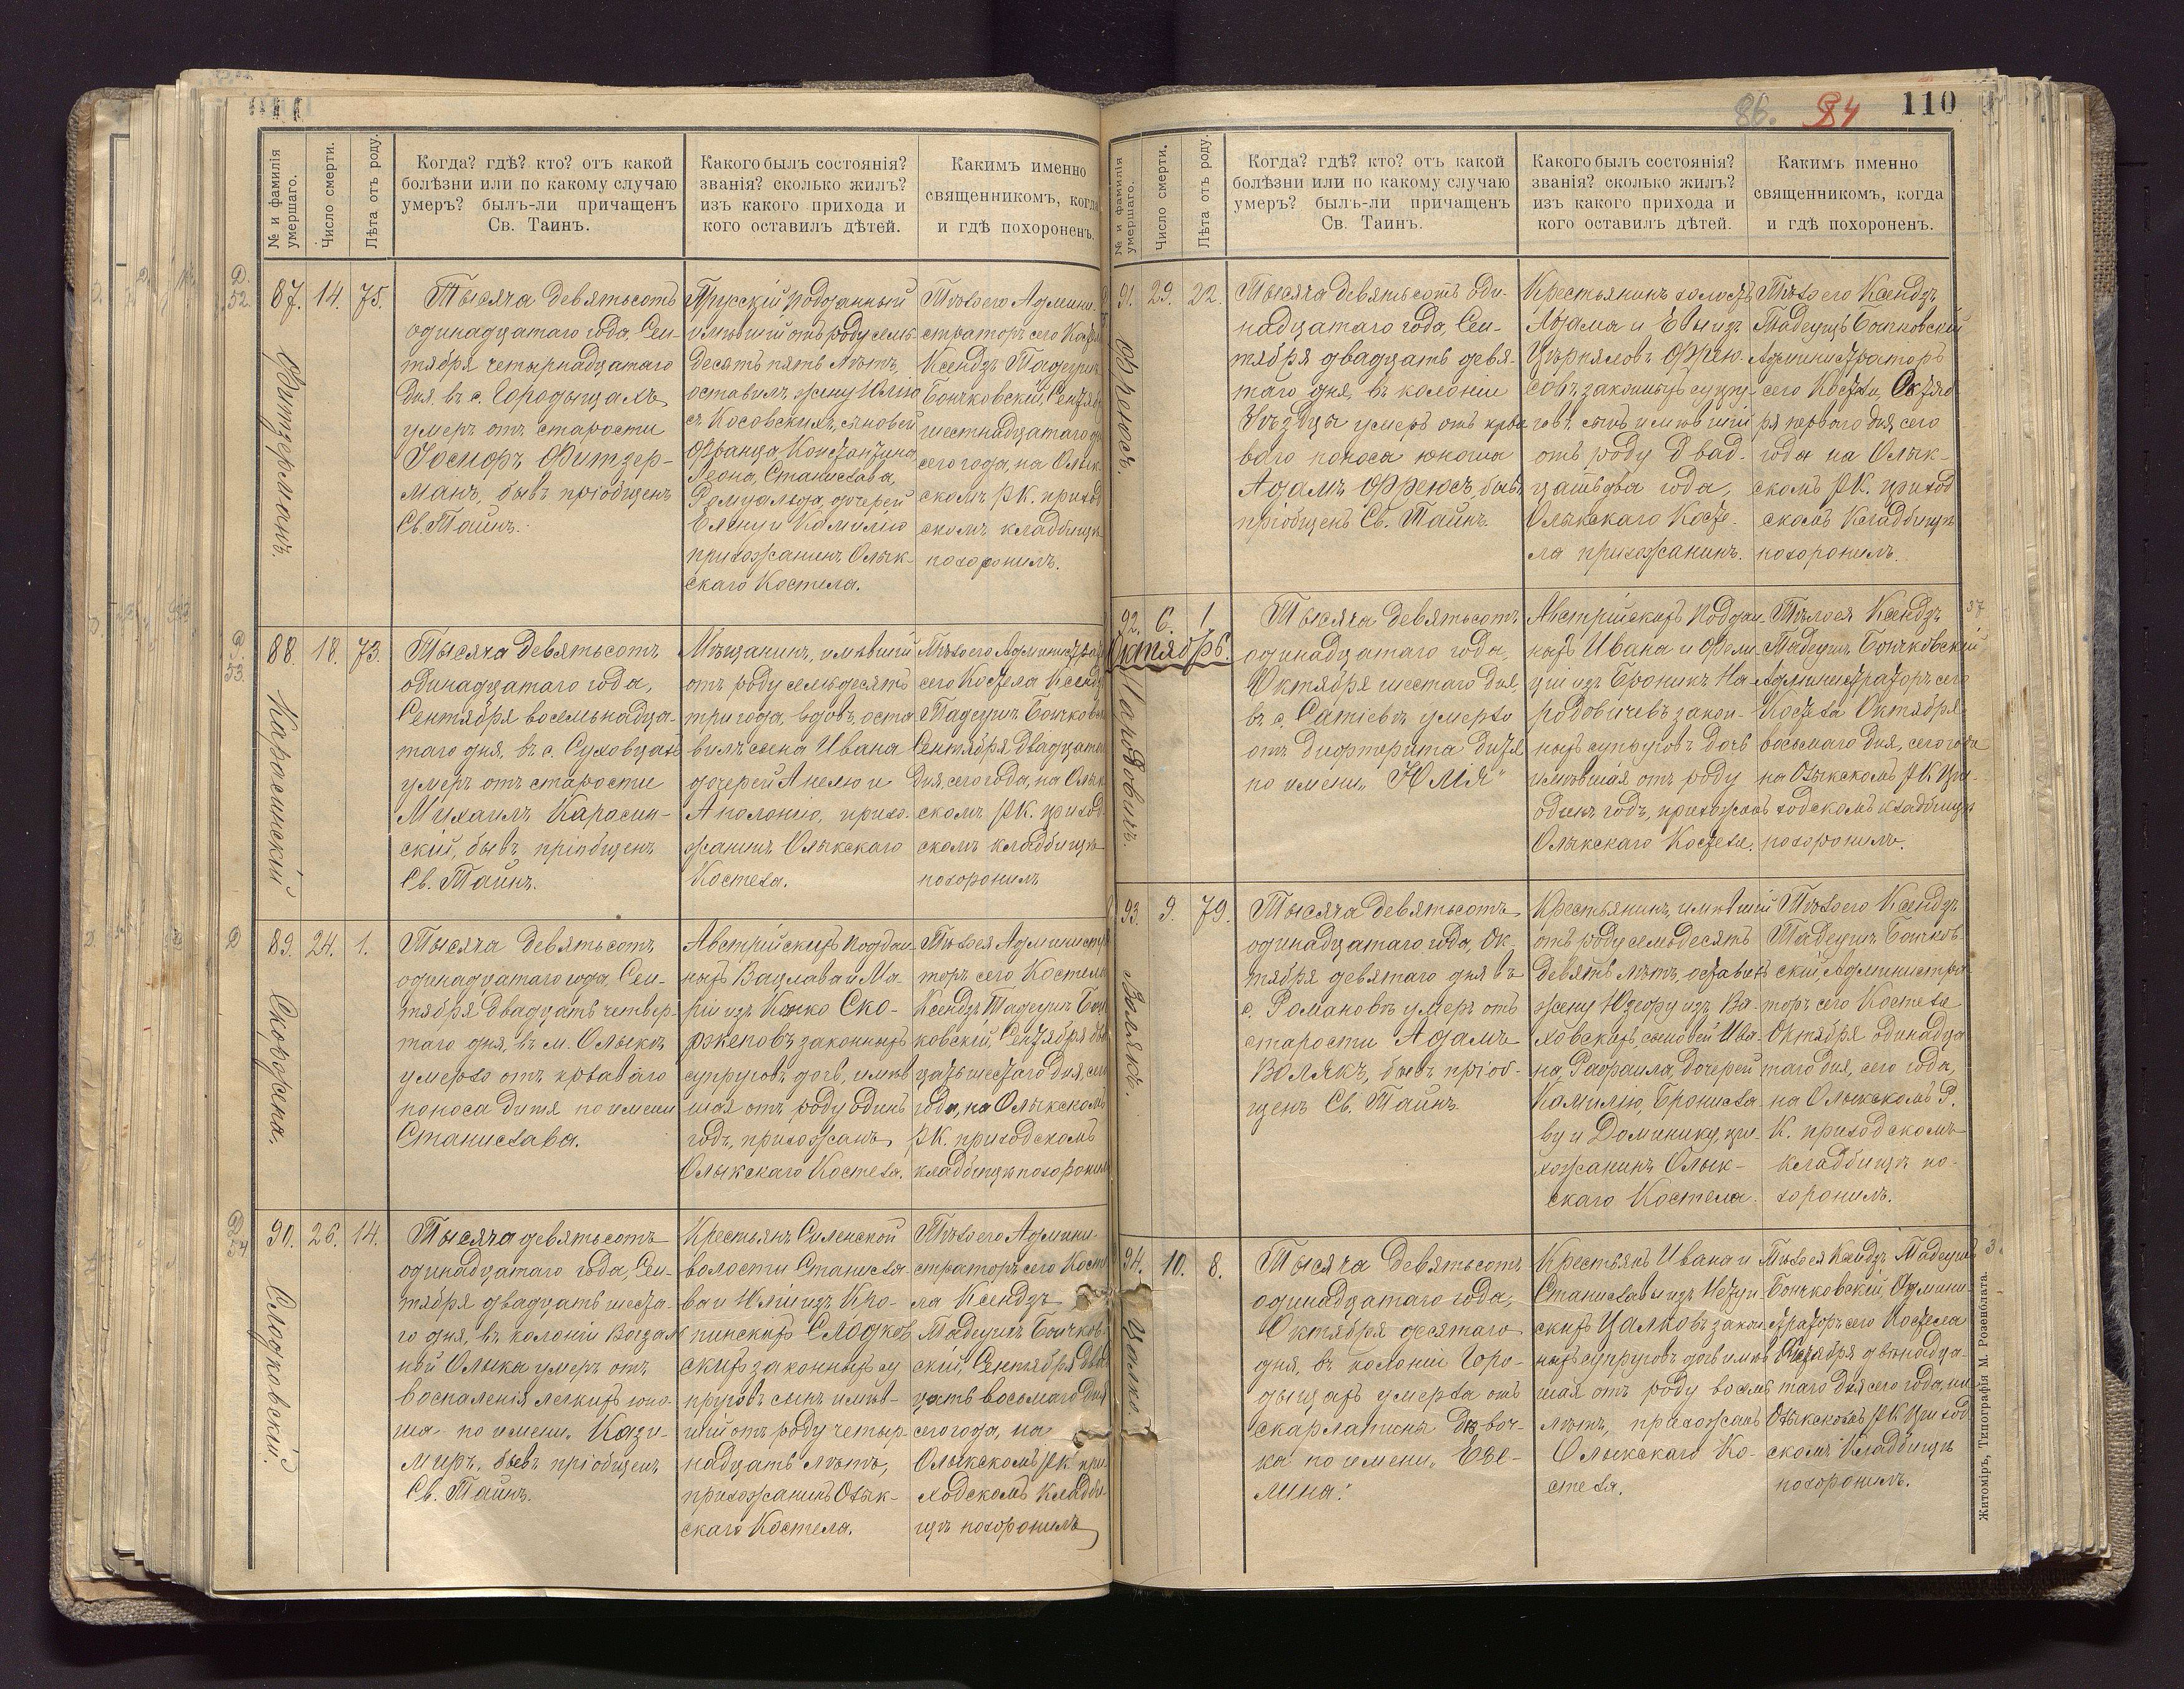 № и фамилія умершаго.
Число смерти.
Лѣта отъ роду.
Когда? гдѣ? кто? отъ какой
болѣзни или по какому случаю
умеръ? былъ-ли причащенъ
Св. Таинъ.
Какого былъ состоянія?
званія? сколько жилъ?
изъ какого прихода и
кого оставилъ дѣтей.
Каким именно
священникомъ, когда
и гдѣ похороненъ.
Д.
52.
87.
14.
75.
Фитцерманъ.
Тысяча девятьсотъ
одинадцатаго года, Сен-
тября четырнадцатаго
дня въ с. Городыщахъ
умеръ отъ старости
Госморъ Фитцер-
манъ, бывъ пріобщенъ
Св. Тайнъ.
Прусскій подданный
имѣвшій отъ роду семь-
десятъ пять лѣтъ,
оставилъ жену Юлію
съ Косовскихъ, сыновей
Франца, Константина,
Леона, Станислава,
Ромуальда, дочерей
и Камилію
прихожанинъ Олык-
скаго Костела.
Тѣло его Админи-
страторъ сего
Ксендзъ Тадеушъ
Бончковскій, Сентяб
шестнадцатаго
сего года, на Олык-
скомъ Р.К. приход
скомъ кладбищѣ
похоронилъ.
Д
53.
88.
18.
73.
Карасинскій
Тысяча девятьсотъ
одинадцатаго года,
Сентября восемьнадца-
таго дня, въ с. Суховцах
умеръ отъ старости
Михаилъ Карасин-
скій, бывъ пріобщенъ
Св. Тайнъ.
Мѣщанинъ, имѣвшій
отъ роду семьдесятъ
три года, вдовъ, оста
вилъ сына Ивана
дочерей Анелю и
Аполонію, прихо-
жанинъ Олыкскаго
Костела.
Тѣло его Администра
сего Костела Ксендз
Тадеушъ Бончков
Сентября двадцата
дня, сего года, на Олык
скомъ Р.К. приход-
скомъ кладбищѣ
похоронилъ
Д
89.
24.
1.
Скоржепа.
Тысяча девятьсотъ
одинадцатаго года, Сен-
тября двадцать четвер-
таго дня, въ м. Олыкѣ
умерло отъ кроваваго
поноса дитя по имени
Станислава.
Австрійскихъ поддан-
ныхъ Вацлава и Ма-
ріи изъ Конко Ско-
ржеповъ законныхъ
супруговъ дочь, имѣв
шая отъ роду одинъ
годъ, прихожанъ
Олыкскаго Костела.
Тѣло ея Администр
торъ сего Костела
Ксендзъ Тадеушъ Бон
ковскій, Сентября два
цать шестаго дня, сего
года, на Олыкскомъ
Р.К. приходскомъ
кладбищѣ похоронил
Д
54
90.
26.
14.
Слодковскій.
Тысяча девятьсотъ
одинадцатаго года, Сен-
тября двадцать шеста-
го дня, въ колоніи Вокзал
ной Олыка умеръ отъ
воспаленія легкихъ юно-
ша по имени „Кази-
миръ, бывъ пріобщенъ
Св. Тайнъ.
Крестьянъ Силенской
волости Станисла-
ва и Юліи изъ Кро-
пинскихъ Слодков
скихъ законныхъ су
пруговъ сынъ имѣв-
шій отъ роду четыр-
надцать лѣтъ,
прихожанинъ Олык-
скаго Костела.
Тѣло его Админи-
страторъ сего Косте
ла Ксендзъ
Тадеушъ Бончков-
скій, Сентября два
цать восьмаго дня
сего года, на
Олыкскомъ Р.К. при-
ходскомъ кладби-
щѣ похоронилъ
86.
84
110
№ и фамилія умершаго.
Число смерти.
Лѣта отъ роду.
Когда? гдѣ? кто? отъ какой
болѣзни или по какому случаю
умеръ? былъ-ли причащенъ
Св. Таинъ.
Какого былъ состоянія?
званія? сколько жилъ?
изъ какого прихода и
кого оставилъ дѣтей.
Каким именно
священникомъ, когда
и гдѣ похороненъ.
91.
29.
22.
Фреюсъ.
Тысяча девятьсотъ оди-
надцатаго года, Сен-
тября двадцать девя-
таго дня, въ колоніи
умеръ отъ крова
ваго поноса юноша
Адамъ Фреюсъ, бывъ
пріобщенъ Св. Тайнъ.
Крестьянинъ холостъ
Адама и Евы изъ
Фрею-
совъ законныхъ супру-
говъ сынъ имѣвшій
отъ роду двад-
цать два года,
Олыкскаго Косте-
ла прихожанинъ.
Тѣло его Ксендзъ
Тадеушъ Бончковскій
Администраторъ
сего Костела, Октяб-
ря перваго дня, сего
года на Олык-
скомъ Р.К. приход
скомъ кладбищѣ
похоронилъ.
92.
6.
1
Октябрь.
Народовичъ.
Тысяча девятьсотъ
одинадцатаго года,
Октября шестаго дня,
въ с. Сатіевѣ умерло
отъ дифтерита дитя
по имени „Юлія"
Австрійскихъ поддан
ныхъ Ивана и Фели-
ціи изъ Броникъ На-
родовичевъ закон-
ныхъ супруговъ дочь
имѣвшая отъ роду
одинъ годъ, прихожанъ
Олыкскаго Костела.
Тѣло ея Ксендзъ
Тадеушъ Бончковскій
Администраторъ сего
Костела Октября
восьмаго дня, сего года
на Олыкскомъ Р.К. при-
ходскомъ кладбищѣ
похоронилъ.
37
93.
9.
79.
Волякъ.
Тысяча девятьсотъ
одинадцатаго года, Ок-
тября девятаго дня въ
с. Романовѣ умеръ отъ
старости Адамъ
Волякъ, бывъ пріоб-
щенъ Св. Тайнъ.
Крестьянинъ, имѣвшій
отъ роду семьдесятъ
девять лѣтъ, оставилъ
жену Юзефу изъ Ва-
ховскихъ, сыновей Ива-
на, Рафаила, дочерей
Камилію, Бронисла-
ву и Доминику, при-
хожанинъ Олык-
скаго Костела.
Тѣло его Ксендзъ
Тадеушъ Бончков-
скій, Администра-
торъ сего Костела
Октября одинадца
таго дня, сего года,
на Олыкскомъ Р.
К. приходскомъ
кладбищѣ по-
хоронилъ.
94.
10.
8.
Цалко.
Тысяча девятьсотъ
одинадцатаго года,
Октября десятаго
дня, въ колоніи Горо-
дыщахъ умерла отъ
скарлатины дѣвоч-
ка по имени „Эве-
лина".
Крестьянъ Ивана и
Станиславы изъ
скихъ Цалковъ закон
ныхъ супруговъ дочь имѣв
шая отъ роду восемь
лѣтъ, прихожанъ
Олыкскаго Ко-
стела.
Тѣло ея Ксендзъ Тадеушъ
Бончковскій, Админи-
страторъ сего Костела
Октября двѣнадца-
таго дня сего года, на
Олыкскомъ Р.К. приход
скомъ кладбищѣ
похоронилъ.
Житоміръ, Типографія М. Розенблата.